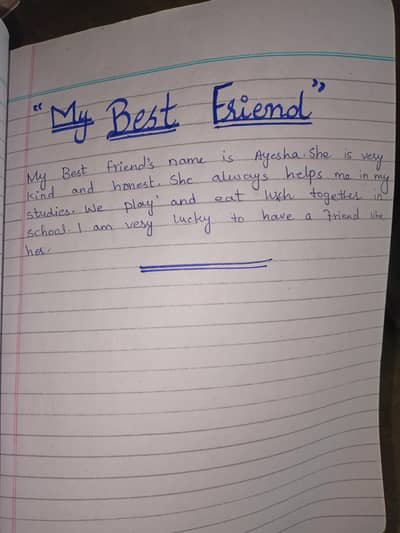 "My Best Friend"
My Best friend's name is Ayesha. She is very
kind and honest. She always helps me in my
studies. We play' and eat lush together in
school. I am very lucky to have a friend like
her.